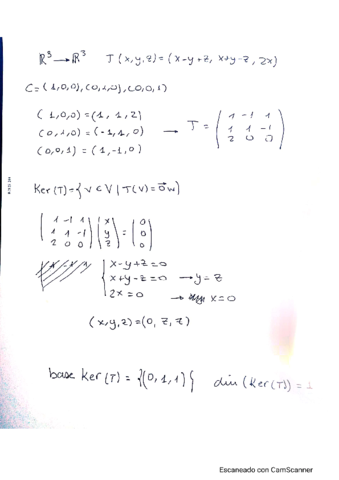 ℝ³ → ℝ³   T(x,y,z) = (x-y+z, x+y-z, 2x)
C = (1,0,0), (0,1,0), (0,0,1)
(1,0,0) = (1, 1, 2)
(0,1,0) = (-1, 1, 0) → T = ( 1 -1 1 / 1 1 -1 / 2 0 0 )
(0,0,1) = (1, -1, 0)
Ker(T) = { v ∈ V | T(v) = 0w }
( 1 -1 1 / 1 1 -1 / 2 0 0 ) ( x / y / z ) = ( 0 / 0 / 0 )
x-y+z=0
x+y-z=0 → y=z
2x=0 → x=0
(x,y,z) = (0, z, z)
base Ker(T) = {(0,1,1)}   dim (Ker(T)) = 1
Escaneado con CamScanner